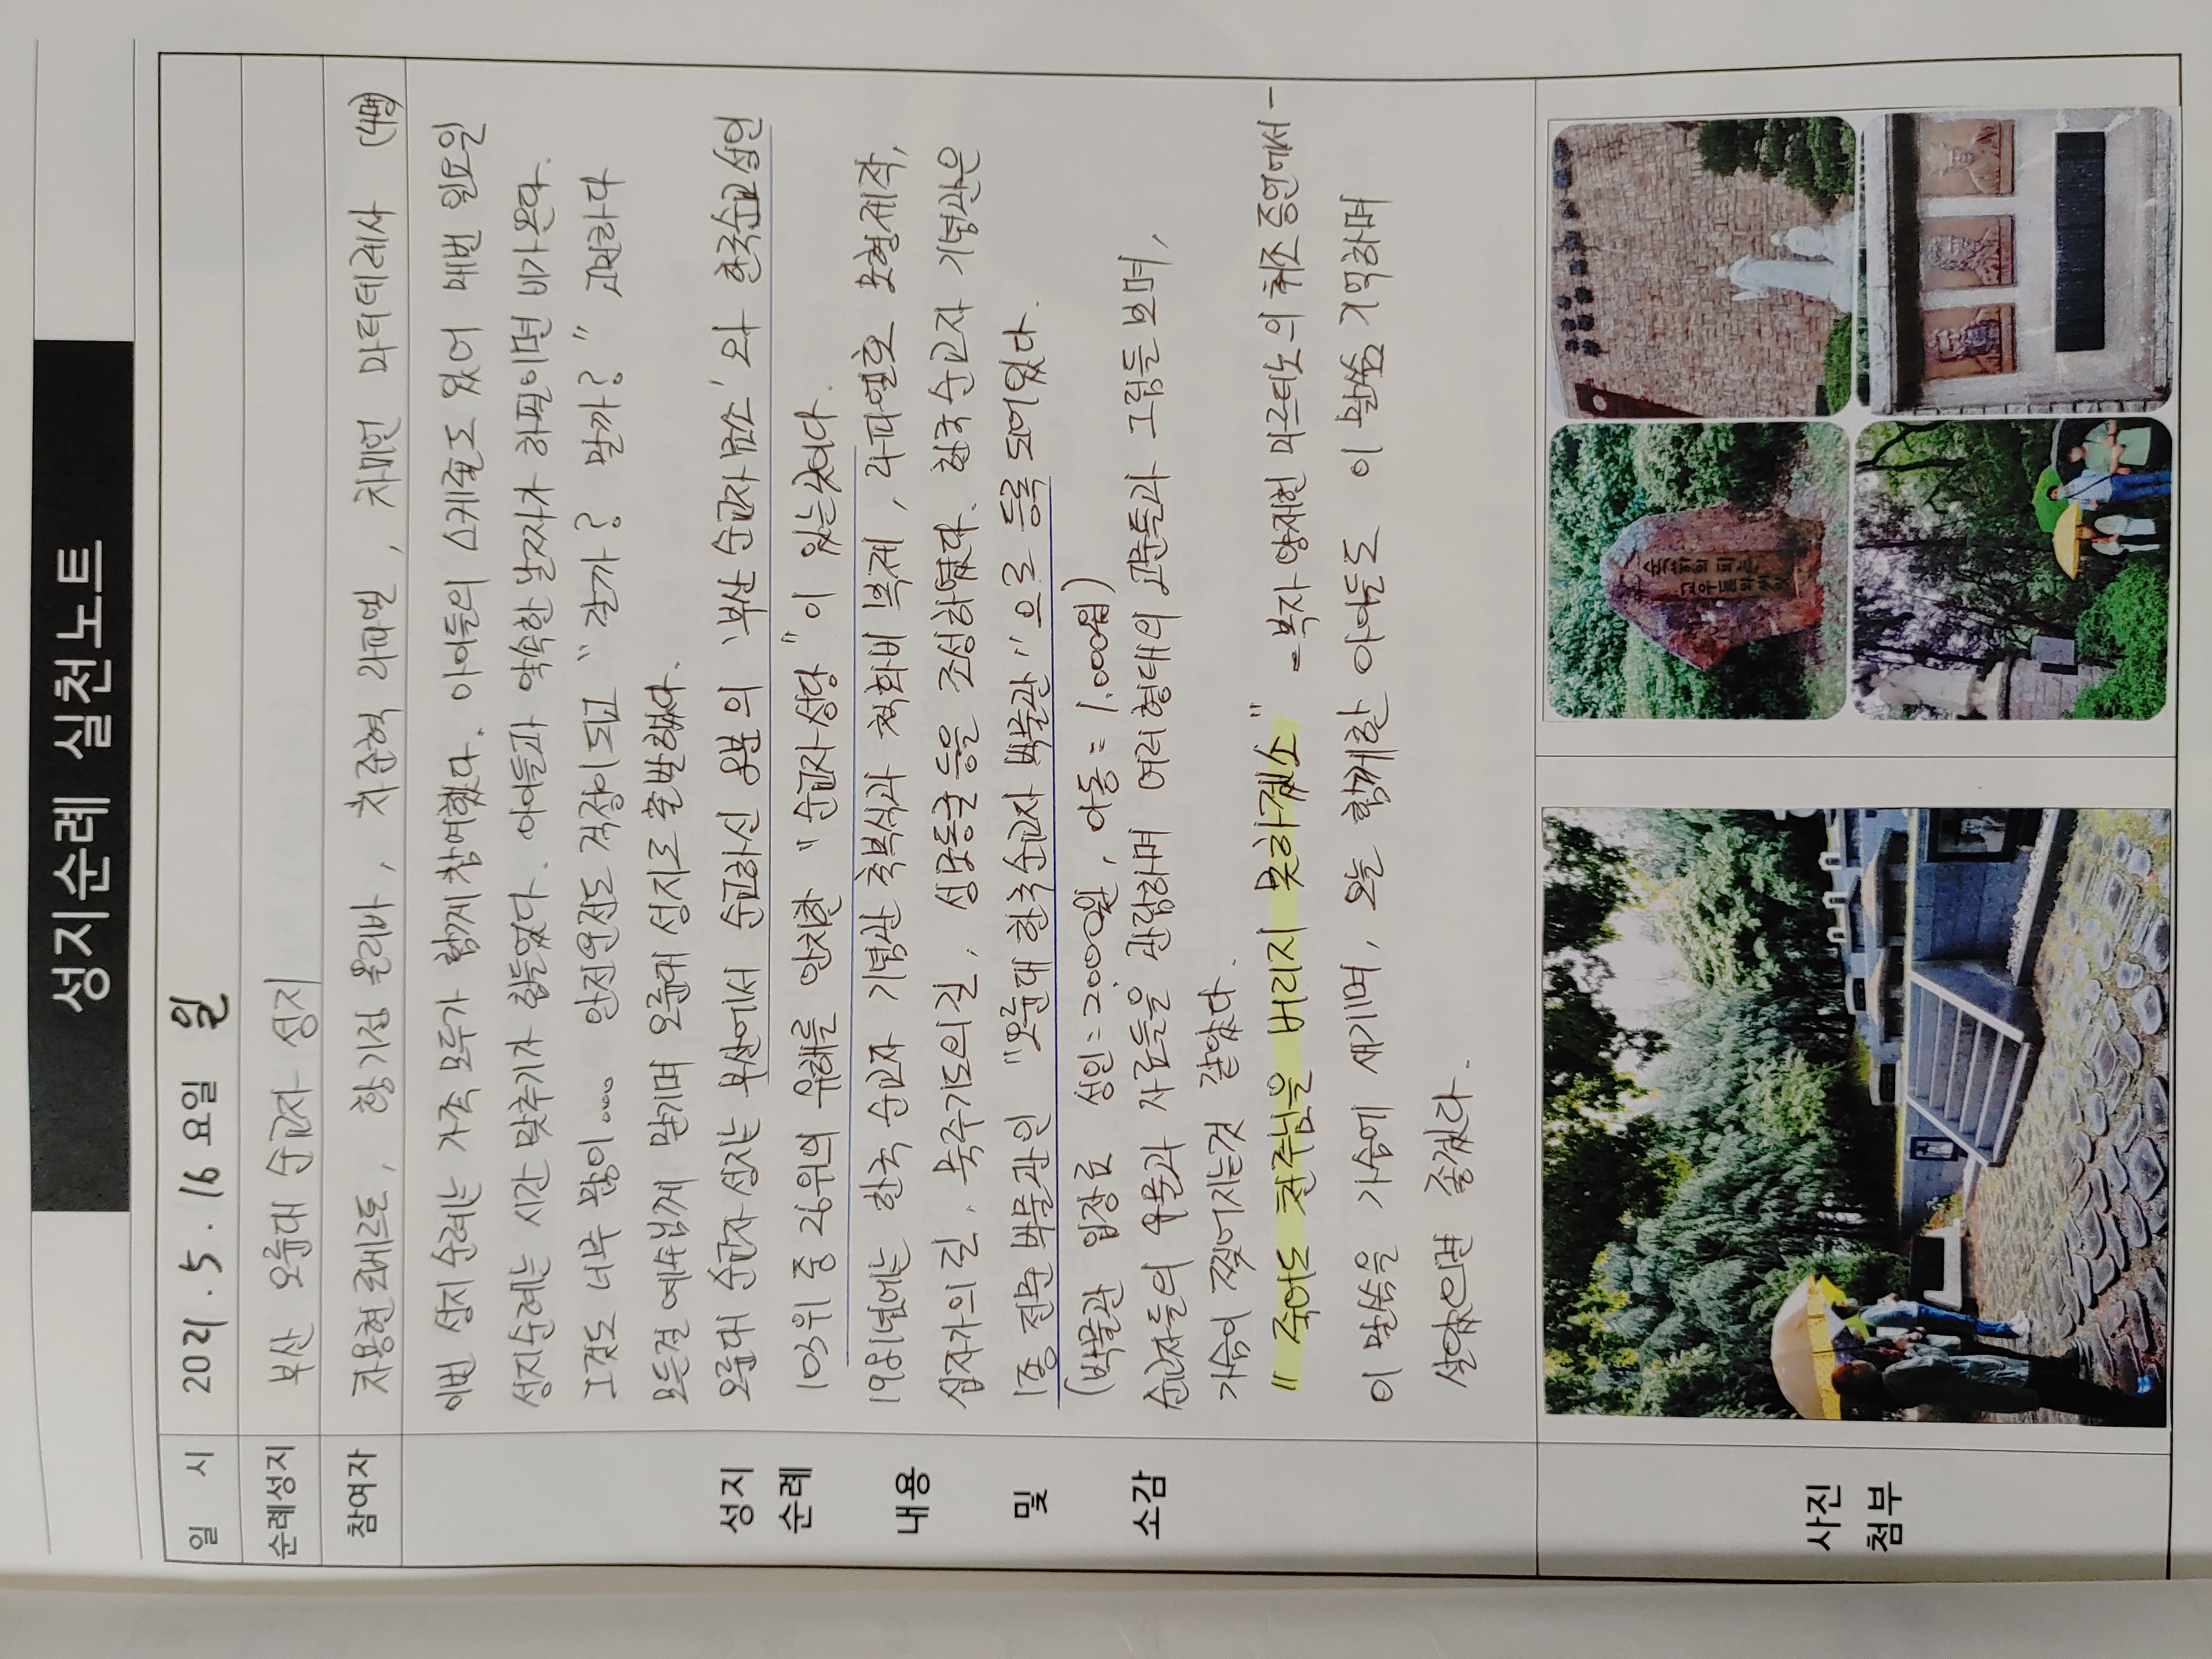 성지순례 실천노트
일 시
2021. 5. 16 요일 일
순례성지
부산 오륜대 순교자 성지
참여자
차용현 로베르토, 황기정 올리바, 차준혁 라파엘, 차미언 마더데레사 (4명)
이번 성지순례는 가족 모두가 함께 참여했다. 아이들의 스케쥴도 있어 매번 일요일
성지순례는 시간 맞추기가 힘들었다. 아이들과 약속한 날짜가 하필이면 비가 온다.
그것도 너무 많이... 안전운전도 걱정이 되고 "갈까? 말까?" 고민하다
모든걸 예수님께 맡기며 오륜대 성지로 출발했다.
오륜대 순교자 성지는 부산에서 순교하신 8분의 '부산 순교자묘소'와 한국순교성인
103위 중 26위의 유해를 안치한 "순교자성당"이 있는곳이다.
1981년에는 한국 순교자 기념관 축복식과 척화비 복제, 라파엘호 모형제작,
십자가의 길, 묵주기도의 길, 성모동굴 등을 조성하였다. 한국순교자 기념관은
1종 전문 박물관인 "오륜대 한국순교자 박물관"으로 등록되어있다.
(박물관 입장료 성인=2,000원, 아동=1,000원)
순교자들의 유물과 자료들을 관람하며 여러형태의 고문들과 그림들 보며,
가슴이 찢어지는것 같았다.
"죽어도 천주님을 버리지 못하겠소" -복자 양재현 마르티노의 취조 증언에서-
이 말씀을 가슴에 새기며, 오늘 함께한 아이들도 이 말씀 기억하며
살았으면 좋겠다.
성지
순례
내용
및
소감
사진
첨부
순교자의 피는
교우들의 씨앗